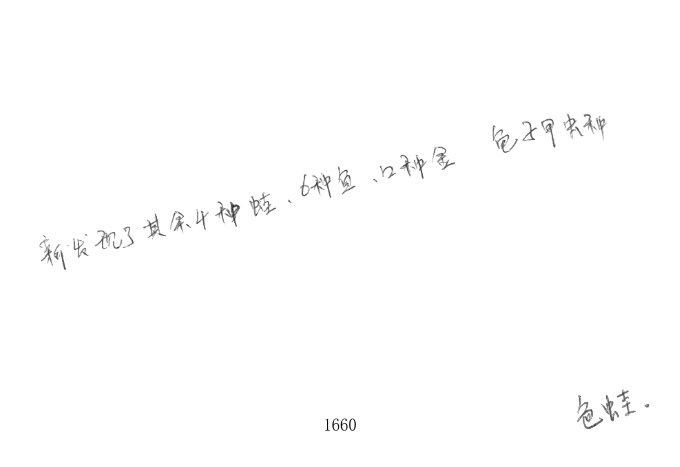 新发现了其余4种蛙、6种鱼、12种金 龟子甲虫种
色蛙。
1660